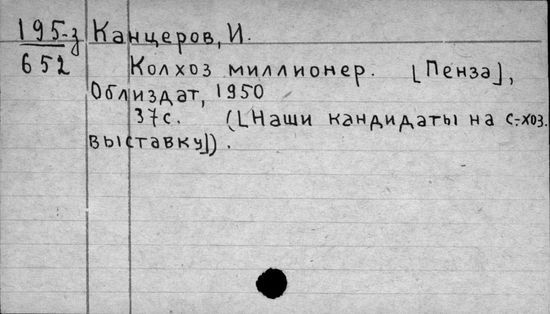 195-з Канцеров, И.
652 Колхоз миллионер. [Пенза],
Облиздат, 1950
37с. ([Наши кандидаты на с.-хоз.
выставку]).